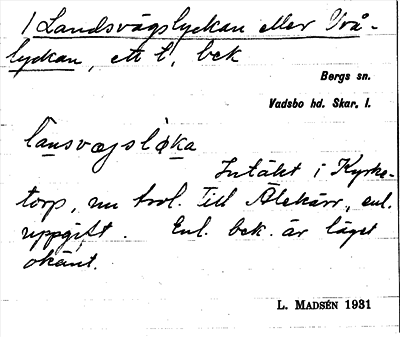 / Landsvägslyckan eller Två-
lyckan, ett l, bek
Bergs sn.
Vadsbo hd. Skar. l.
lansvægsløka
Intäkt i Kyrke-
torp, nu trol. till Älekärr, enl.
uppgift. Enl. bek. är läget
okänt.
L. MADSÉN 1931